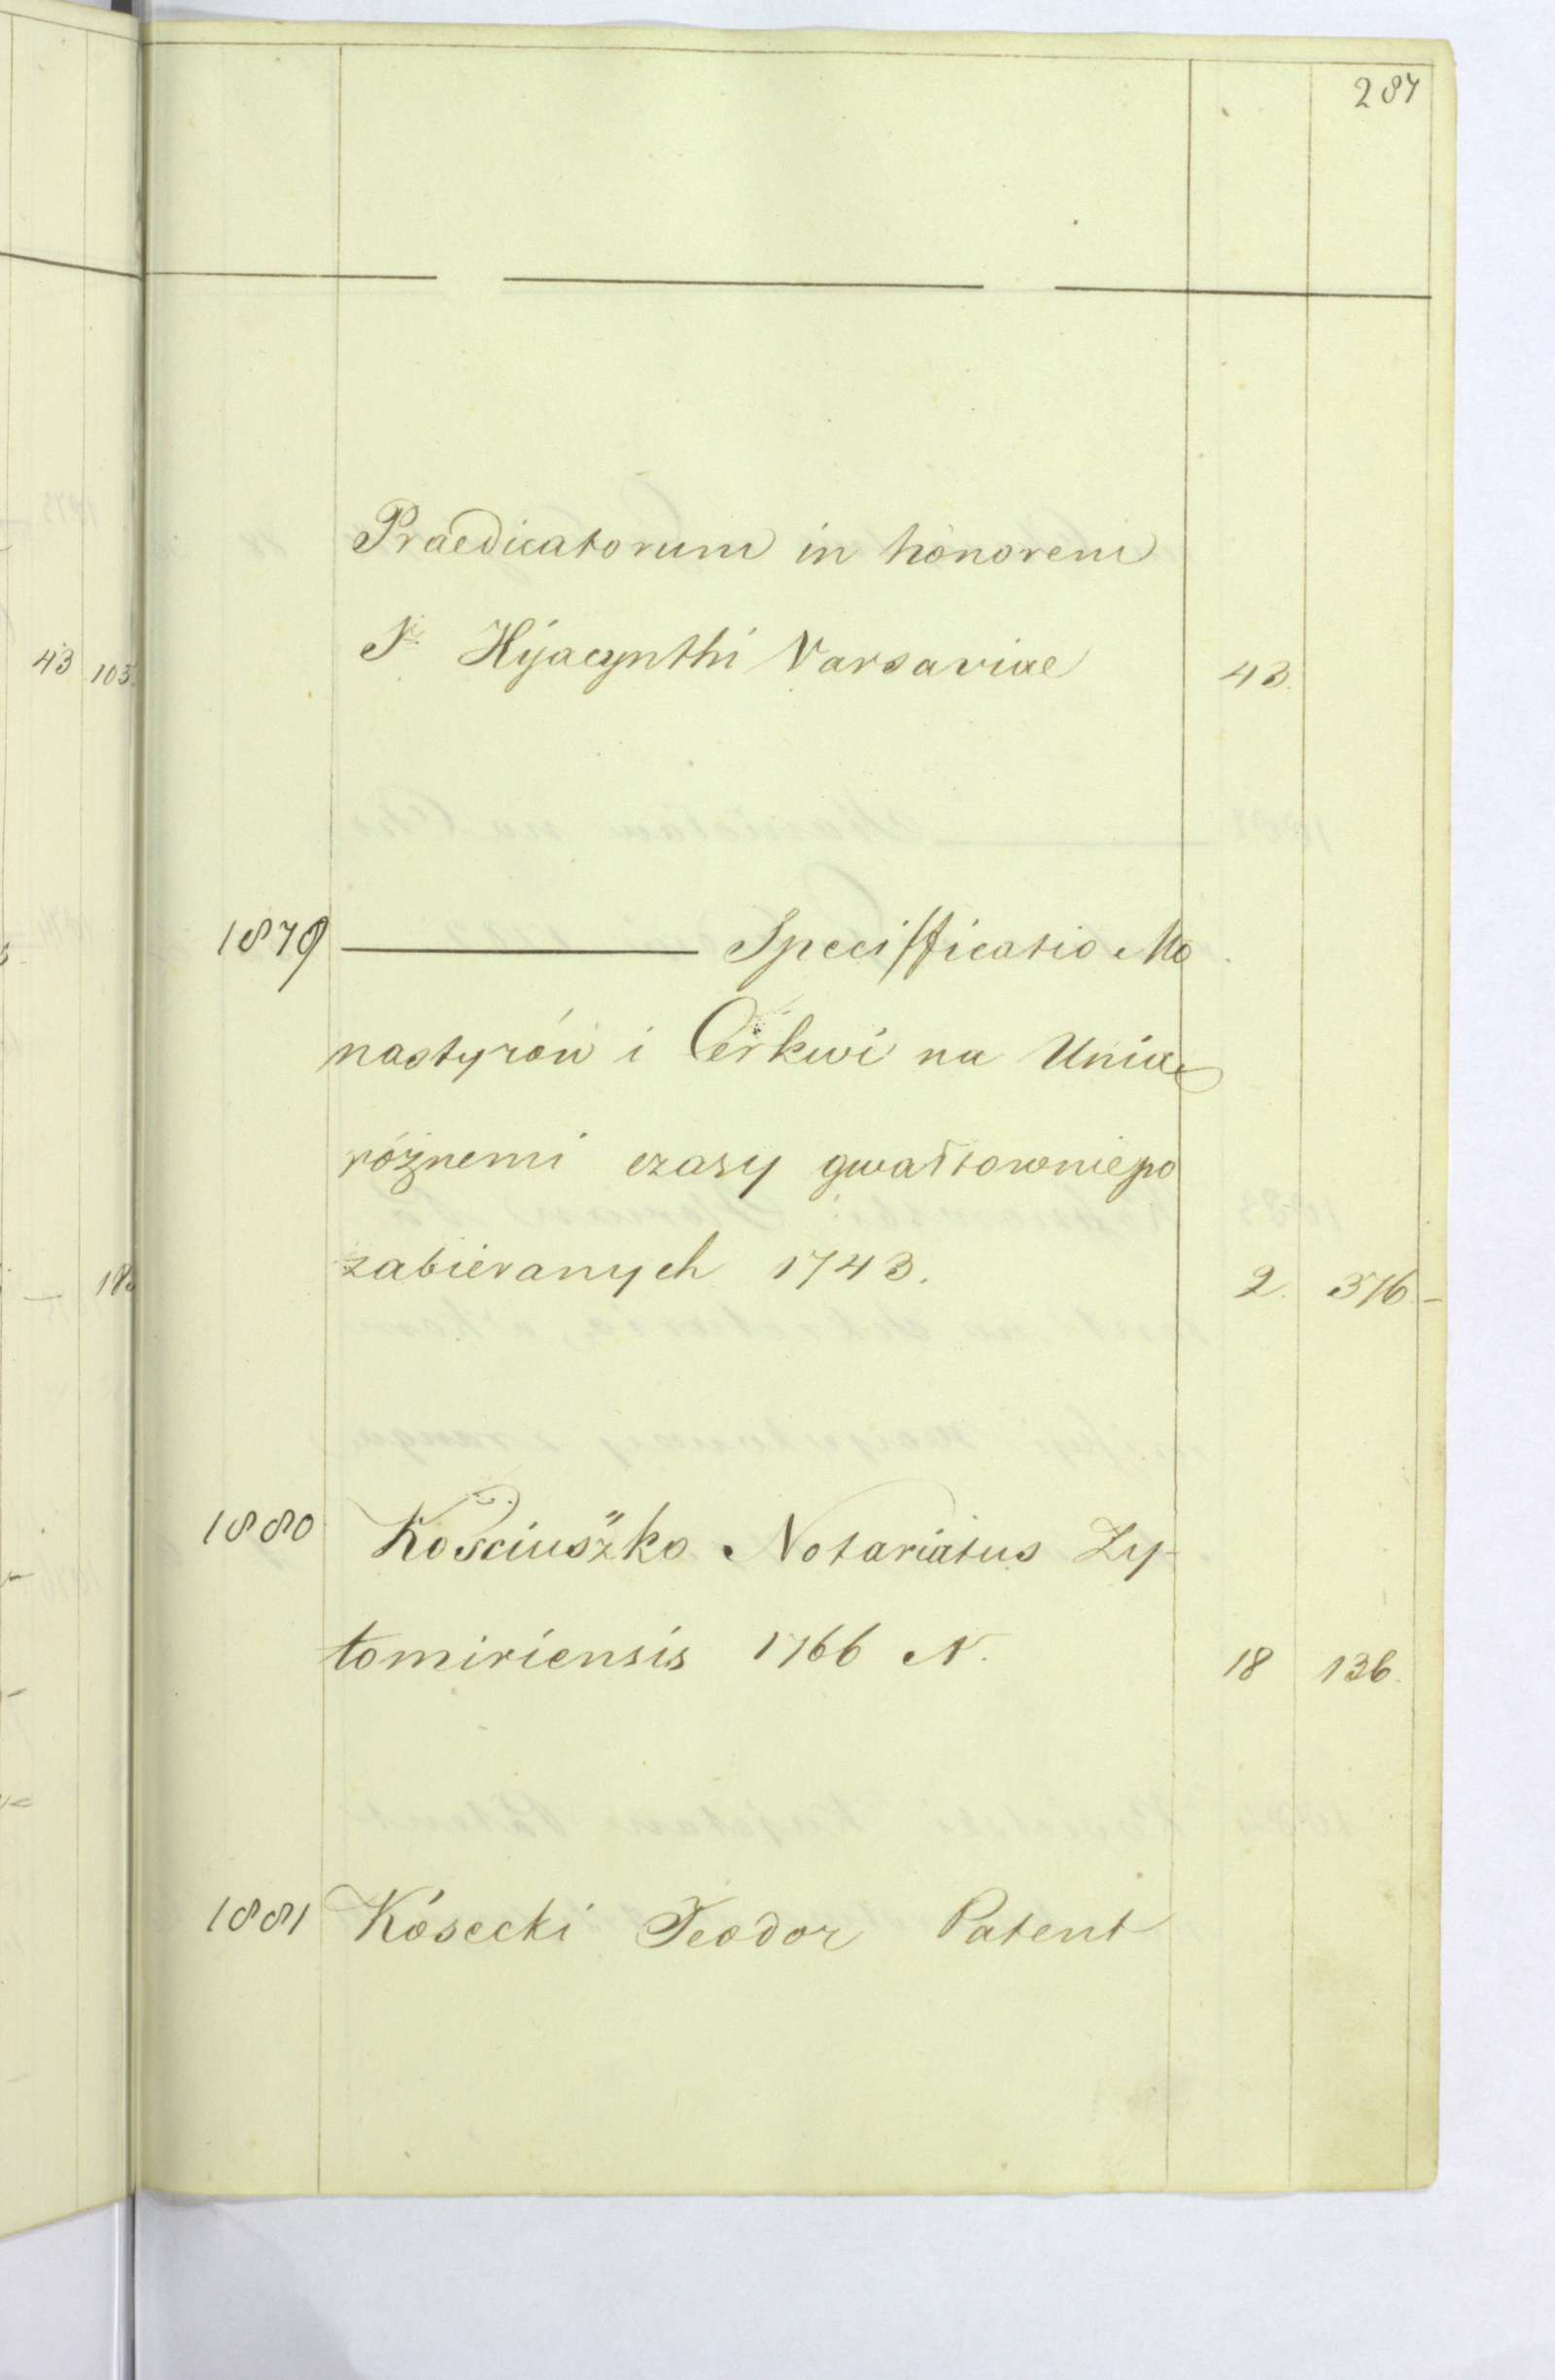 287
Praedicatorum in honorem
S. Hyacynthi Varsaviae 43.
1879 ——— Speciffficatio Mo
nastyrów i Cerkwi na Uniae
róznemi czasy gwałtownie po
zabieranych 1743. 2. 376.
1880 Kosciuszko Notariatus Zy-
tomiriensis 1766 N. 18 136.
1881 Kósecki Teodor Patent
43 105.